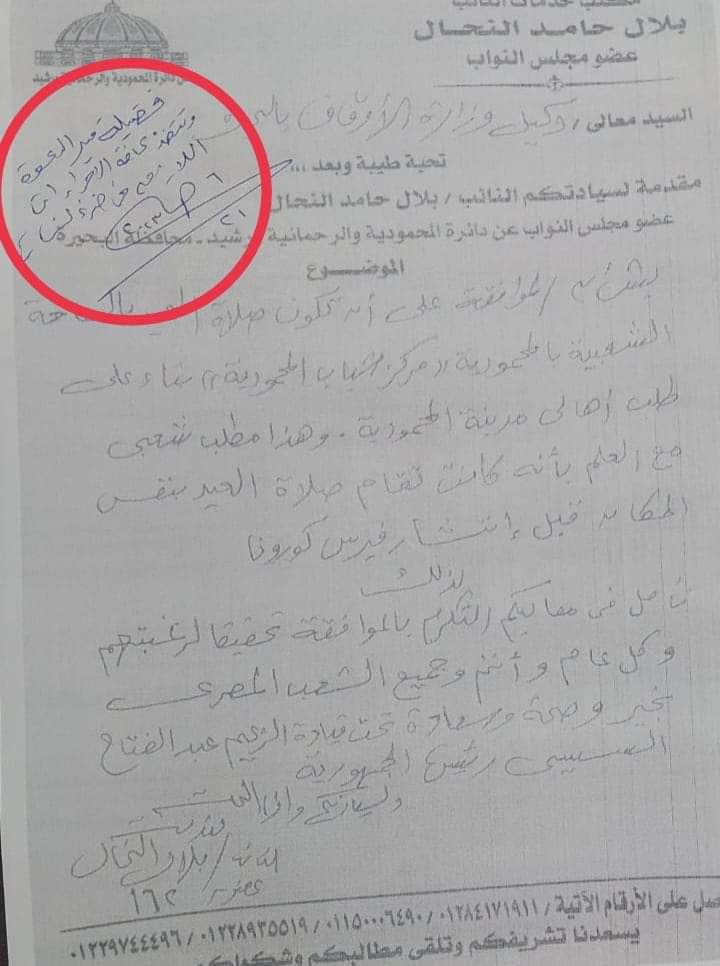 مكتب خدمات النائب
بلال حامد النحال
عضو مجلس النواب
عن دائرة المحمودية والرحمانية ورشيد
فضيلة مدير الدعوة
وتتخذ كافة الإجراءات
اللازمة
٦
٢١
السيد معالى / وكيل وزارة الأوقاف بالبحيرة
تحية طيبة وبعد ...
مقدمة لسيادتكم النائب / بلال حامد النحال
عضو مجلس النواب عن دائرة المحمودية والرحمانية ورشيد - محافظة البحيرة
الموضوع
بشأن / الموافقة على أن تكون صلاة العيد بالساحة
الشعبية بالمحمودية (( مركز شباب المحمودية )) بناء على
طلب أهالى مدينة المحمودية . وهذا مطلب شعبى
مع العلم بأنه كانت تقام صلاة العيد بنفس
المكان قبل إنتشار فيرس كورونا
لذلك
نأمل فى معاليكم التكرم بالموافقة تحقيقا لرغبتهم
وكل عام وأنتم وجميع الشعب المصرى
بخير وصحة وسعادة تحت قيادة الزعيم عبد الفتاح
السيسى رئيس الجمهورية
ولسيادتكم وافر التحية
النائب / بلال النحال
عضوية / ١٦٢
صل على الأرقام الآتية / ٠١٢٨٤١٧١٩١١ / ٠١١٥٠٠٠٦٤٩٠ / ٠١٢٢٨٩٣٥٥١٩ / ٠١٢٢٩٧٤٤٤٩٦
يسعدنا تشريفكم وتلقى مطالبكم وشكواكم